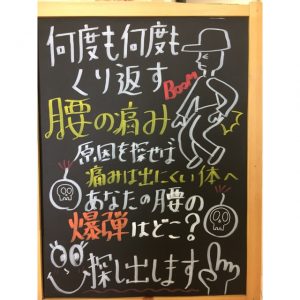 何度も何度も
くり返す
Boom
腰の痛み
原因を探せば
痛みは出にくい体へ
あなたの腰の
爆弾はどこ?
探し出します